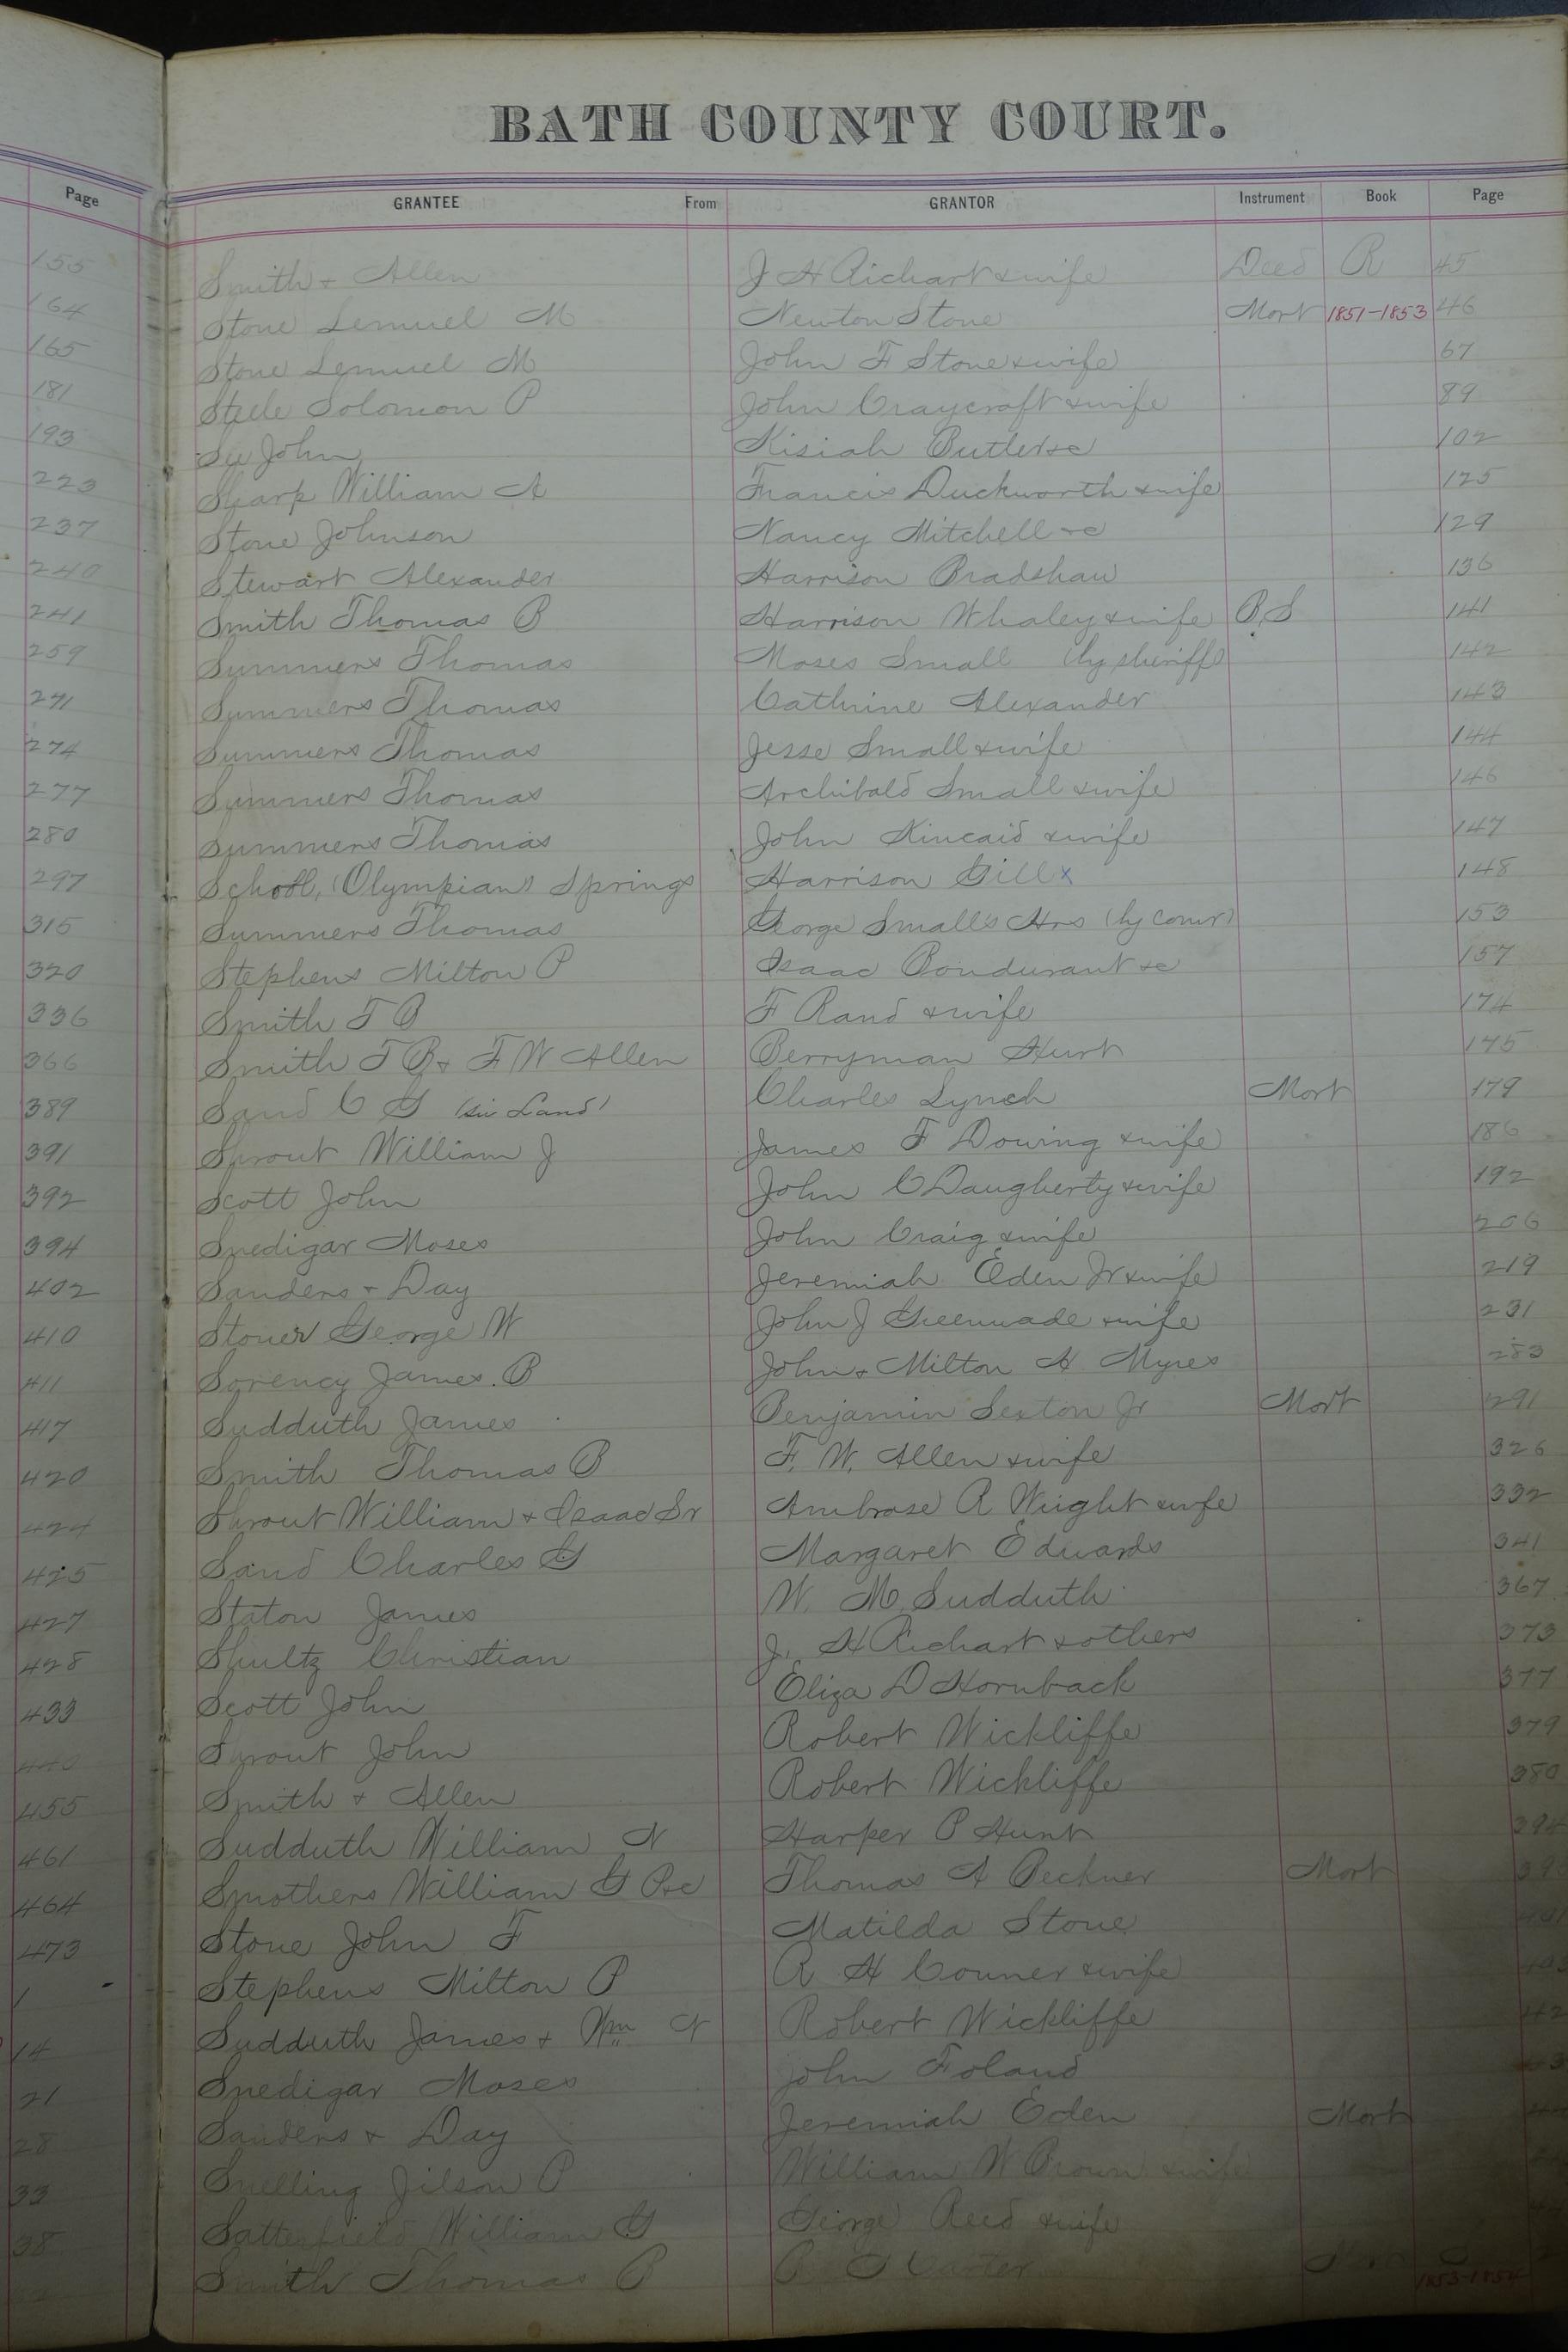 BATH COUNTY COURT.
Page GRANTEE From GRANTOR Instrument Book Page
155 Smith + Allen J H Richart & wife Deed R 45
164 Stone Lemuel M Newton Stone Mort 1851-1853 46
165 Stone Lemuel M John F Stone & wife 67
181 Steele Solomon P John Craycraft & wife 89
193 See John Kisiah Butler &c 102
223 Sharp William A Francis Duckworth & wife 125
237 Stone Johnson Nancy Mitchell &c 129
240 Stewart Alexander Harrison Bradshaw 136
241 Smith Thomas B Harrison Whaley & wife B.S 141
259 Summers Thomas Moses Small (by sheriff) 142
271 Summers Thomas Cathrine Alexander 143
274 Summers Thomas Jesse Small & wife 144
277 Summers Thomas Archibald Small & wife 146
280 Summers Thomas John Kincaid & wife 147
297 School, (Olympian) Springs Harrison Gill x 148
315 Summers Thomas George Small's Hrs (by comr) 153
320 Stephens Milton P Isaac Bondurant &c 157
336 Smith T B F Rand & wife 174
366 Smith T B + F W Allen Berryman Hurt 175
389 Sand C G (in Land) Charles Lynch Mort 179
391 Sprout William J James F Dowing & wife 186
392 Scott John John C Daugherty & wife 192
394 Snedigar Moses John Craig & wife 206
402 Sanders + Day Jeremiah Eden Jr & wife 219
410 Stoner George W John J Greenwade & wife 231
411 Sorency James B John + Milton H Myres 283
417 Sudduth James Benjamin Sexton Jr Mort 291
420 Smith Thomas B F. W. Allen & wife 326
424 Sprout William + Isaac Sr Ambrose R Wright & wife 332
425 Sand Charles G Margaret Edwards 341
427 Staton James W. M. Sudduth 367
428 Shultz Christian J. H Richart & others 373
433 Scott John Eliza D Hornback 377
440 Sprout John Robert Wickliffe 379
455 Smith + Allen Robert Wickliffe 380
461 Sudduth William N Harper P Hunt 394
464 Smothers William G B &c Thomas A Peckner Mort
473 Stone John F Matilda Stone
1 Stephens Milton P R H Conner & wife
14 Sudduth James + Wm N Robert Wickliffe
21 Snedigar Moses John Foland
28 Sanders + Day Jeremiah Eden Mort
33 Snelling Jilson P William W Brown & wife
38 Satterfield William G George Reed & wife
Smith Thomas B Carter 1853-1854